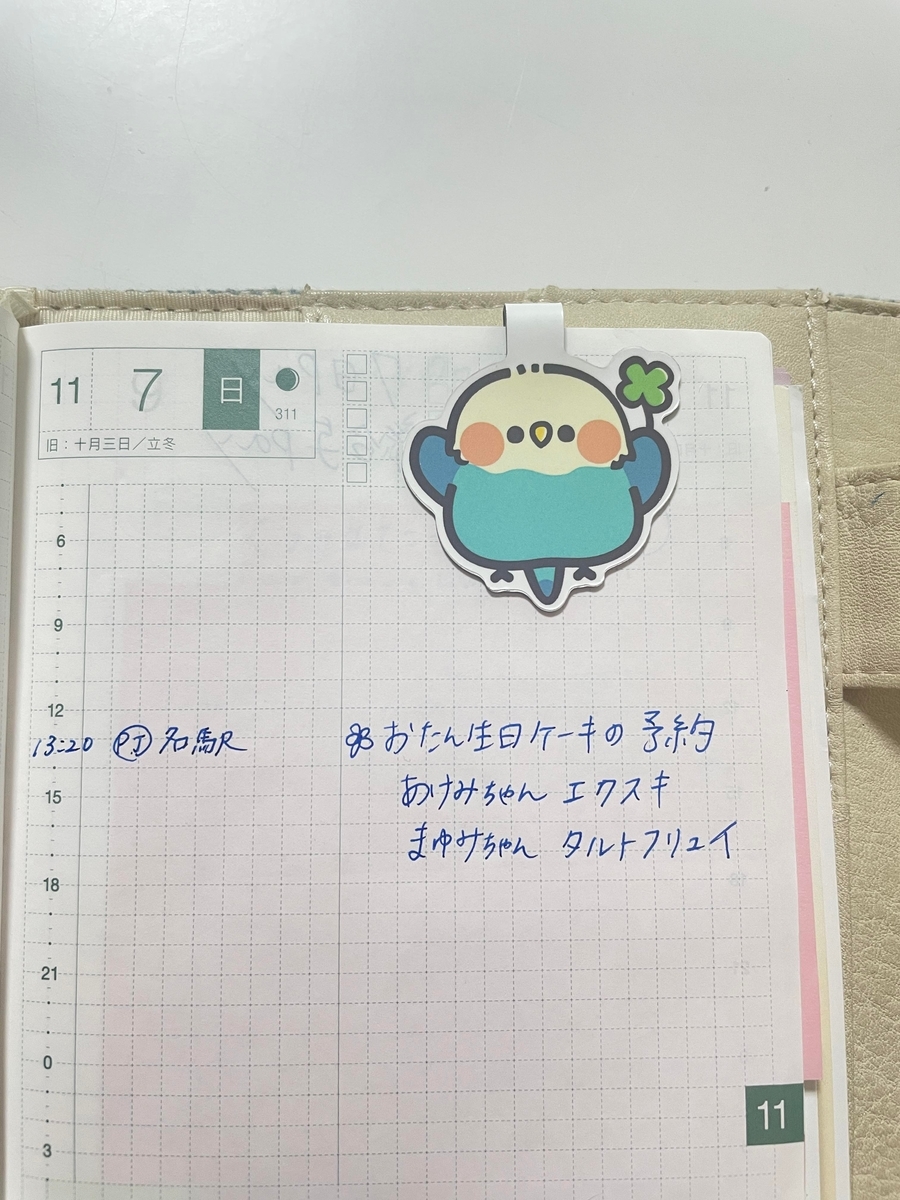 11 7 日
311
旧：十月三日／立冬
6
9
12
13:20 PJ 名駅 おたん生日ケーキの予約
15 あけみちゃん エクスキ
まゆみちゃん タルトフリュイ
18
21
0
11
3